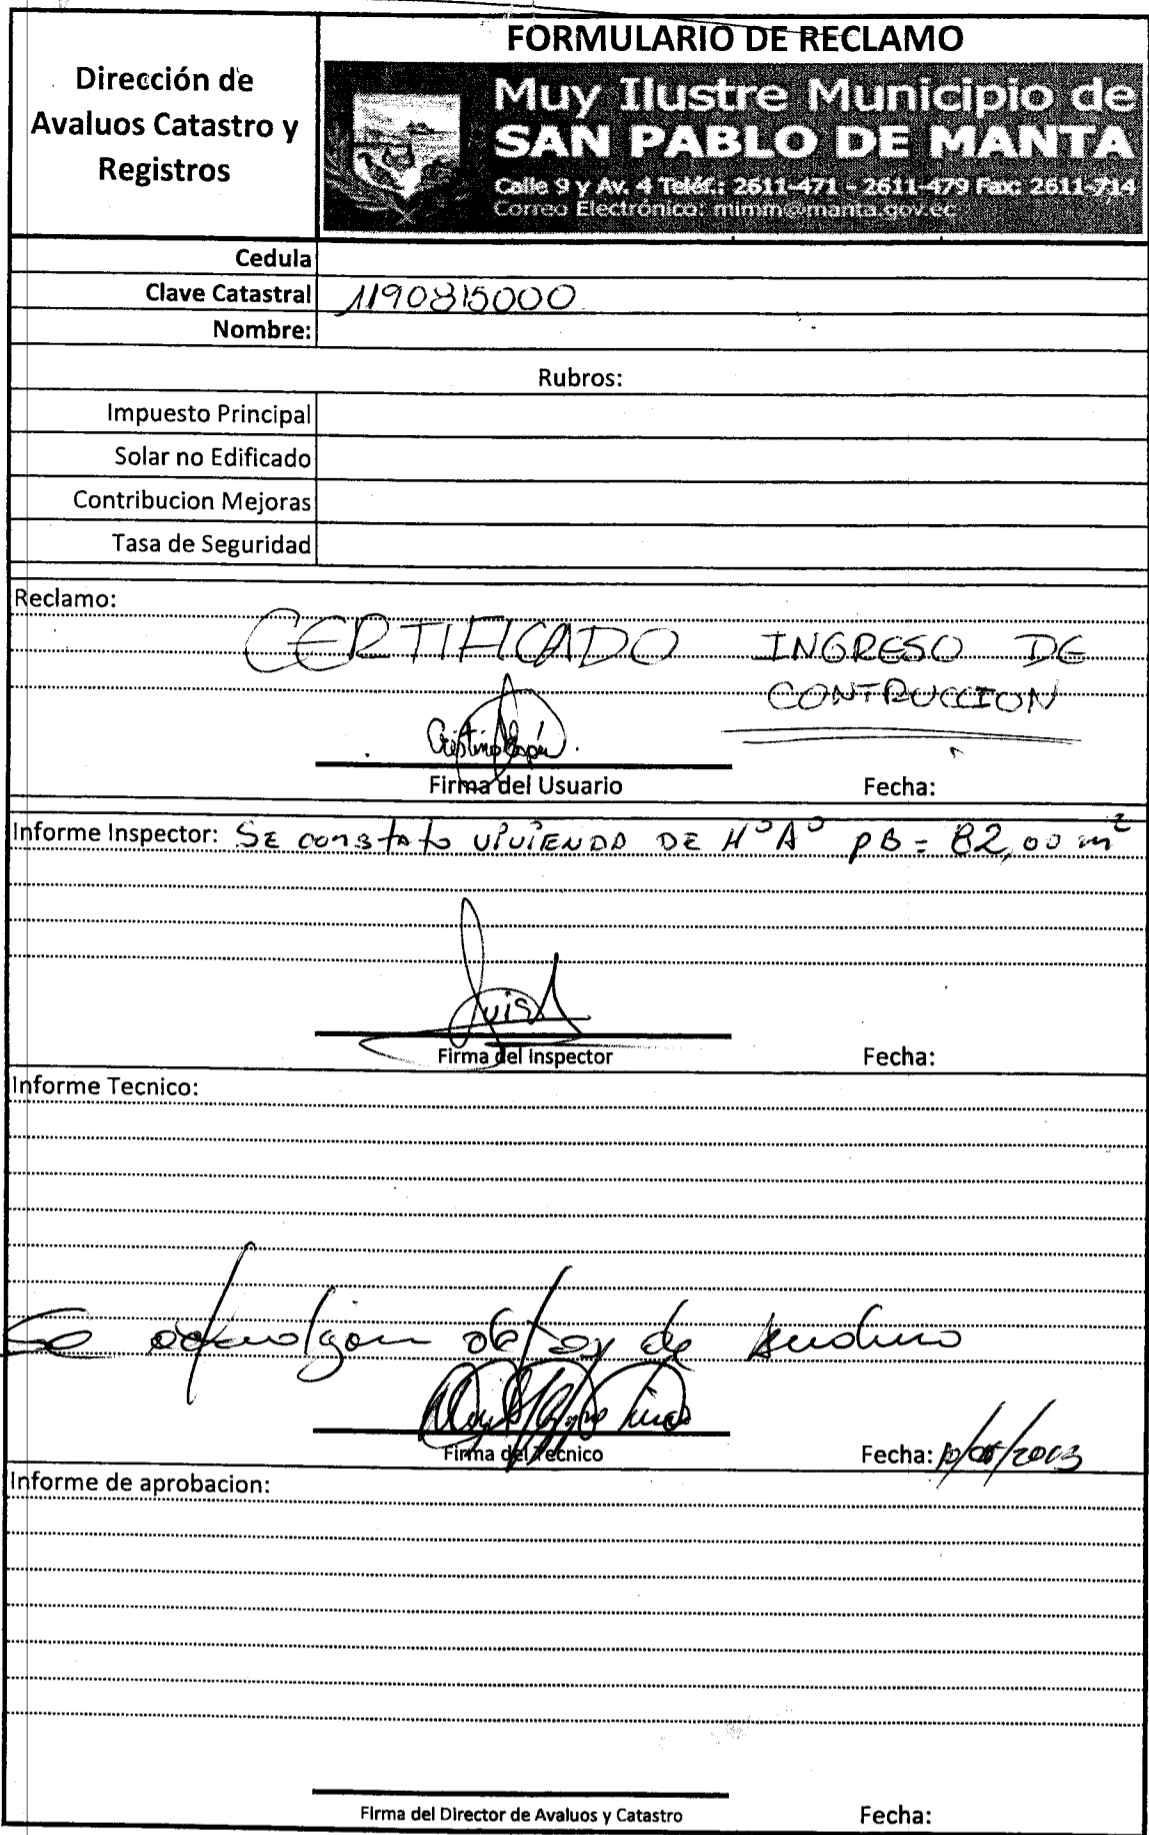 FORMULARIO DE RECLAMO
Dirección de
Avaluos Catastro y
Registros
Muy Ilustre Municipio de
SAN PABLO DE MANTA
Calle 9 y Av. 4 Teléf.: 2611-471 - 2611-479 Fax: 2611-714
Correo Electrónico: mimm@manta.gov.ec
Cedula
Clave Catastral 1190815000
Nombre:
Rubros:
Impuesto Principal
Solar no Edificado
Contribucion Mejoras
Tasa de Seguridad
Reclamo:
CERTIFICADO INGRESO DE
CONTRUCCION
Firma del Usuario Fecha:
Informe Inspector: SE constato viviENDA DE HºAº PB = 82,00 m²
Luis
Firma del Inspector Fecha:
Informe Tecnico:
Se de
Firma del Tecnico Fecha: /2013
Informe de aprobacion:
Firma del Director de Avaluos y Catastro Fecha: